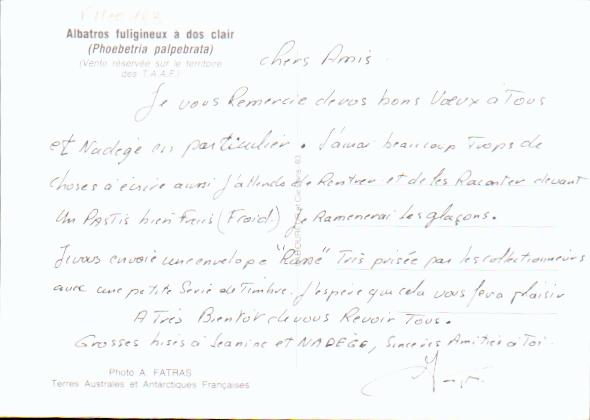 Albatros fuligineux à dos clair
(Phoebetria palpebrata)
(Vente réservée sur le territoire
des T.A.A.F.)
chers Amis
Je vous Remercie de vos bons Vœux à Tous
et Nadège en particulier. J'aurai beaucoup Trops de
choses à écrire aussi J'attends de Rentrer et de les Raconter devant
un PASTIS bien Frais (Froid.) Je Ramenerai les glaçons.
Je vous envoie une envelope "Rare" Très prisée par les collectionneurs
avec une petite Serie de Timbre. J'espère que cela vous fera plaisir
A Très Bientôt de vous Revoir Tous.
Grosses bises à Jeanine et NADÈGE, Sincères Amitiés à Toi.
Photo A. FATRAS
Terres Australes et Antarctiques Françaises